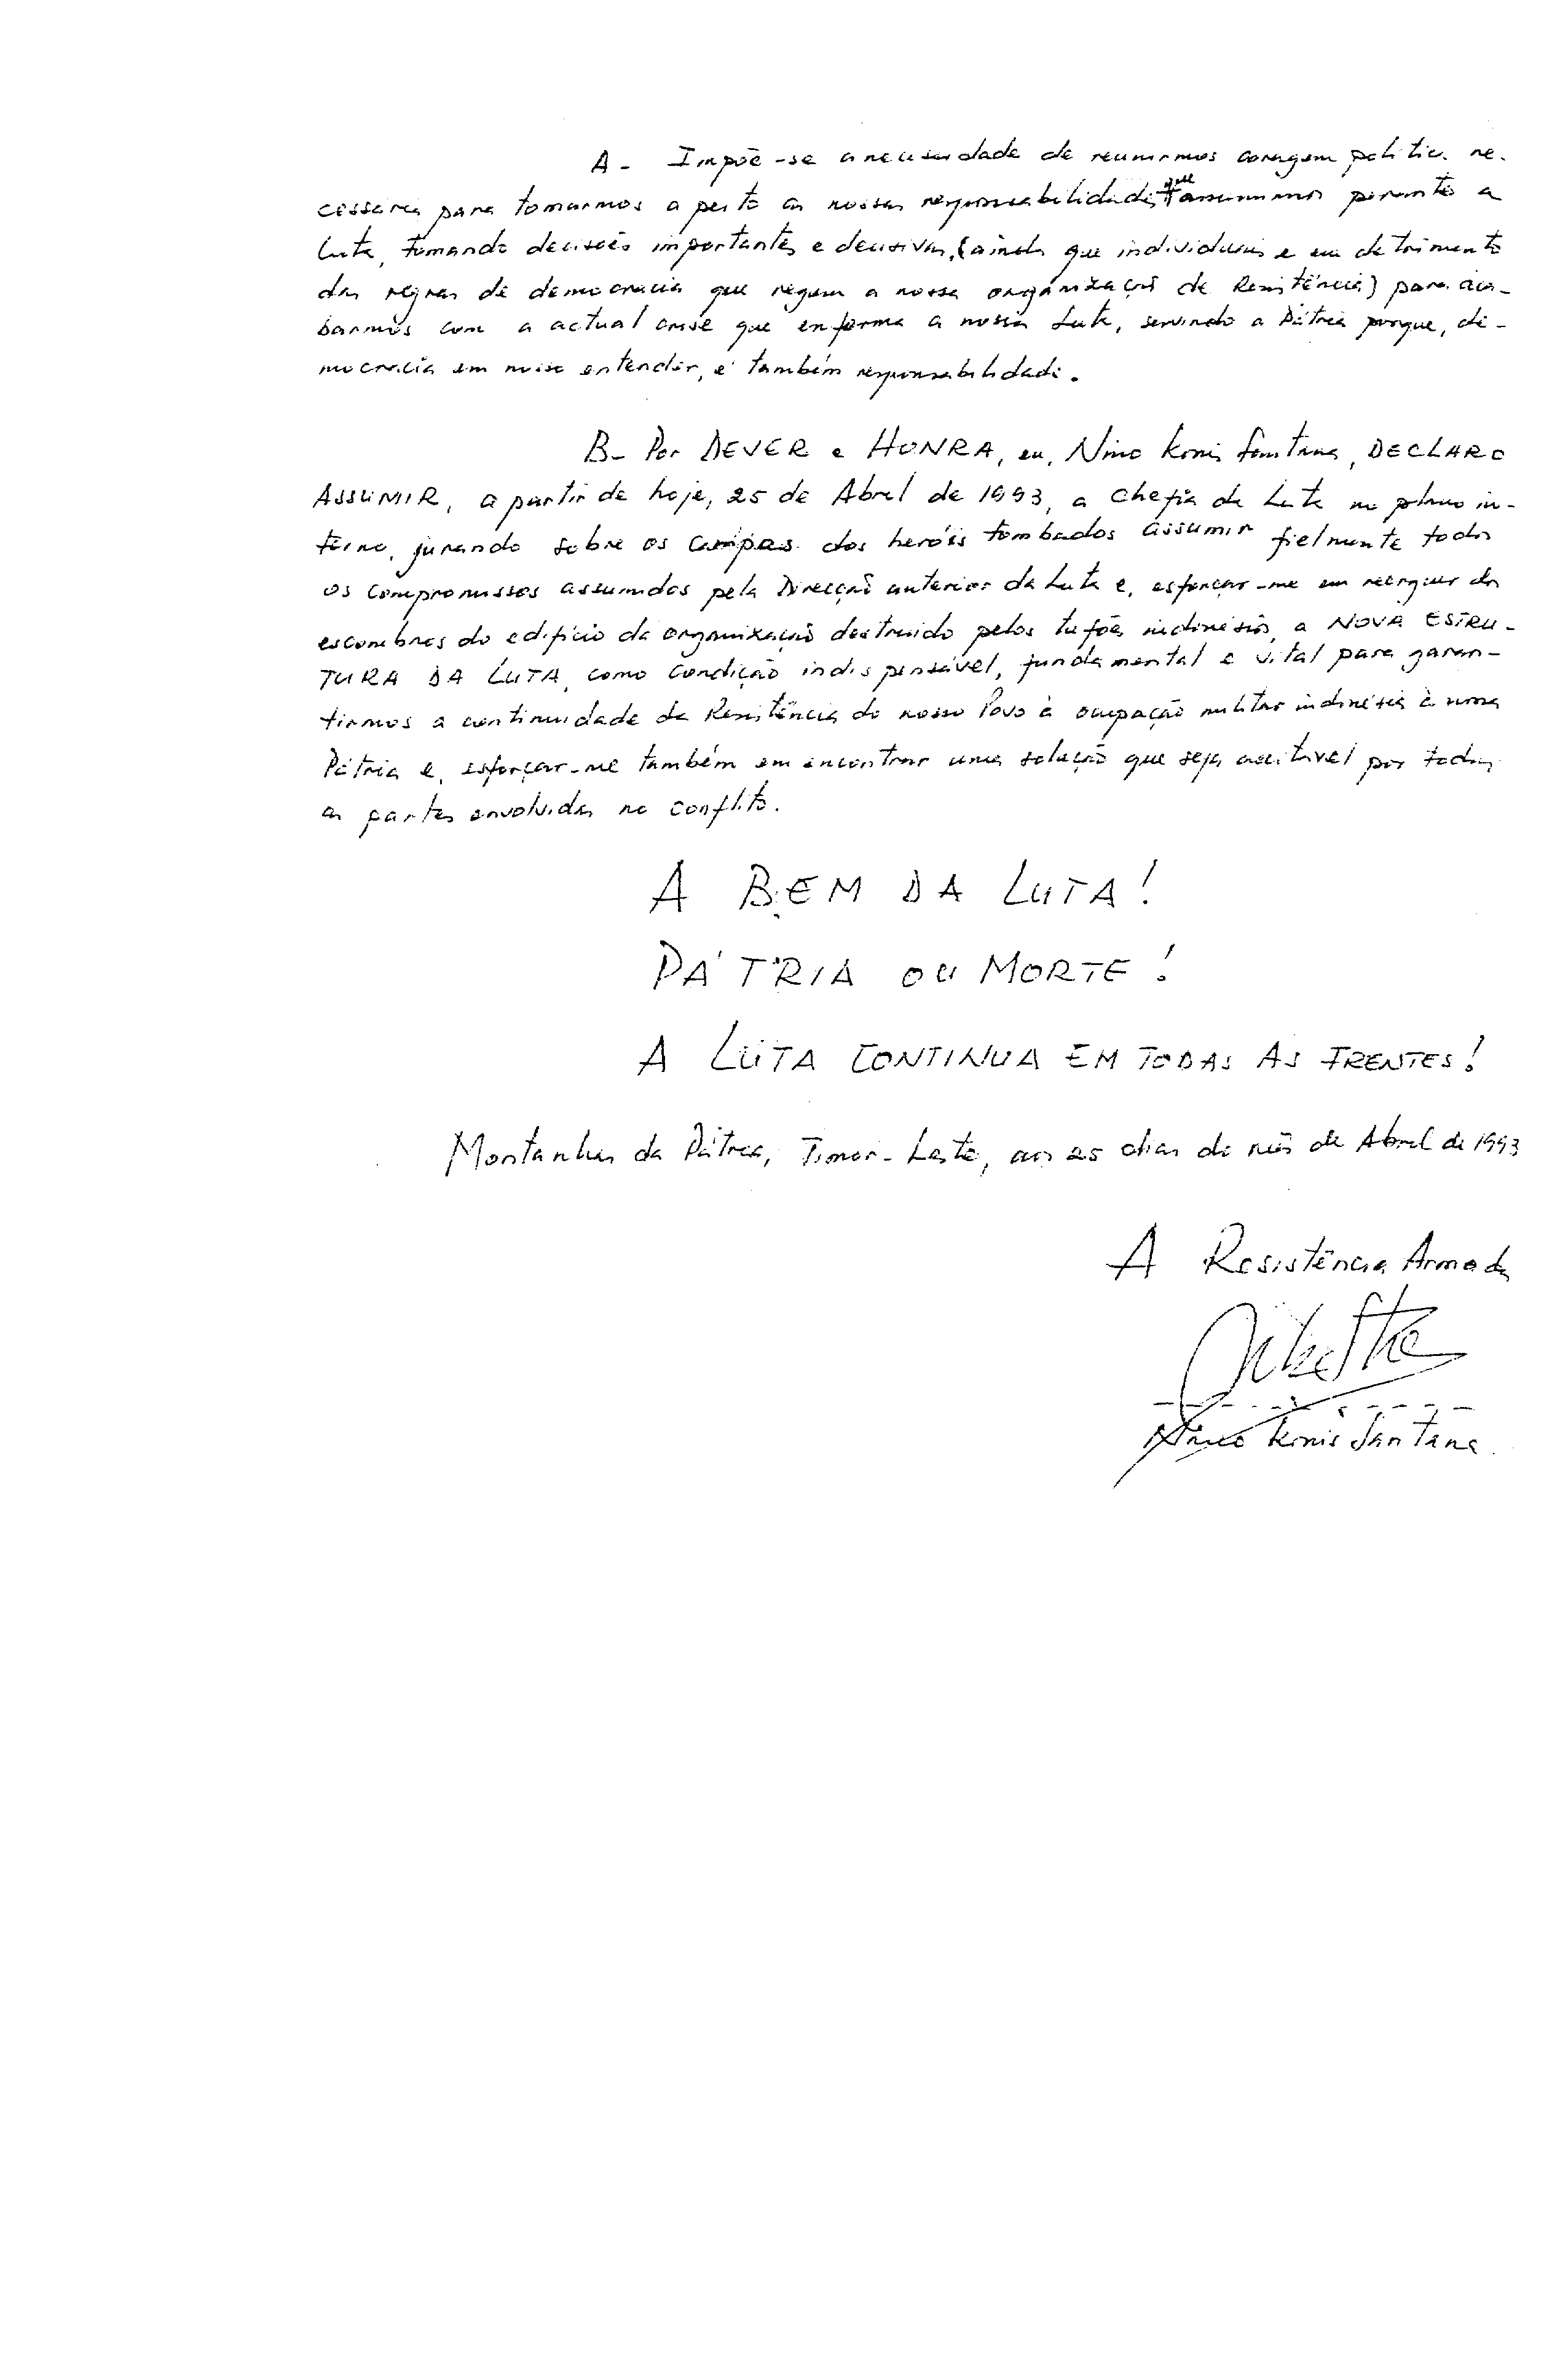 A- Impõe-se a necessidade de reunirmos coragem politica ne-
cessaria para tomarmos a peito as nossas responsabilidades que assumimos perante a
Luta, tomando decisões importantes e decisivas, (ainda que individuais e em detrimento
das regras de democracia que regem a nossa organização de Resistência) para aca-
barmos com a actual crise que enforma a nossa Luta, servindo a Pátria porque, de-
mocracia em nosso entender, é também responsabilidade.
B- Por DEVER e HONRA, eu, Nino Konis Santana, DECLARO
ASSUMIR, a partir de hoje, 25 de Abril de 1993, a chefia da Luta no plano in-
terno, jurando sobre os campas dos heróis tombados assumir fielmente todos
os compromissos assumidos pela Direcção anterior da Luta e, esforçar-me em reerguer dos
escombros do edifício da organização destruido pelos tufões indonésios, a NOVA ESTRU-
TURA DA LUTA, como condição indispensável, fundamental e vital para garan-
tirmos a continuidade da Resistência do nosso Povo à ocupação militar indonésia à nossa
Pátria e, esforçar-me também em encontrar uma solução que seja aceitável por todas
as partes envolvidas no conflito.
A BEM DA LUTA!
PÁTRIA OU MORTE!
A LUTA CONTINUA EM TODAS AS FRENTES!
Montanhas da Pátria, Timor-Leste, aos 25 dias do mês de Abril de 1993
A Resistência Armada
Nino Konis Santana